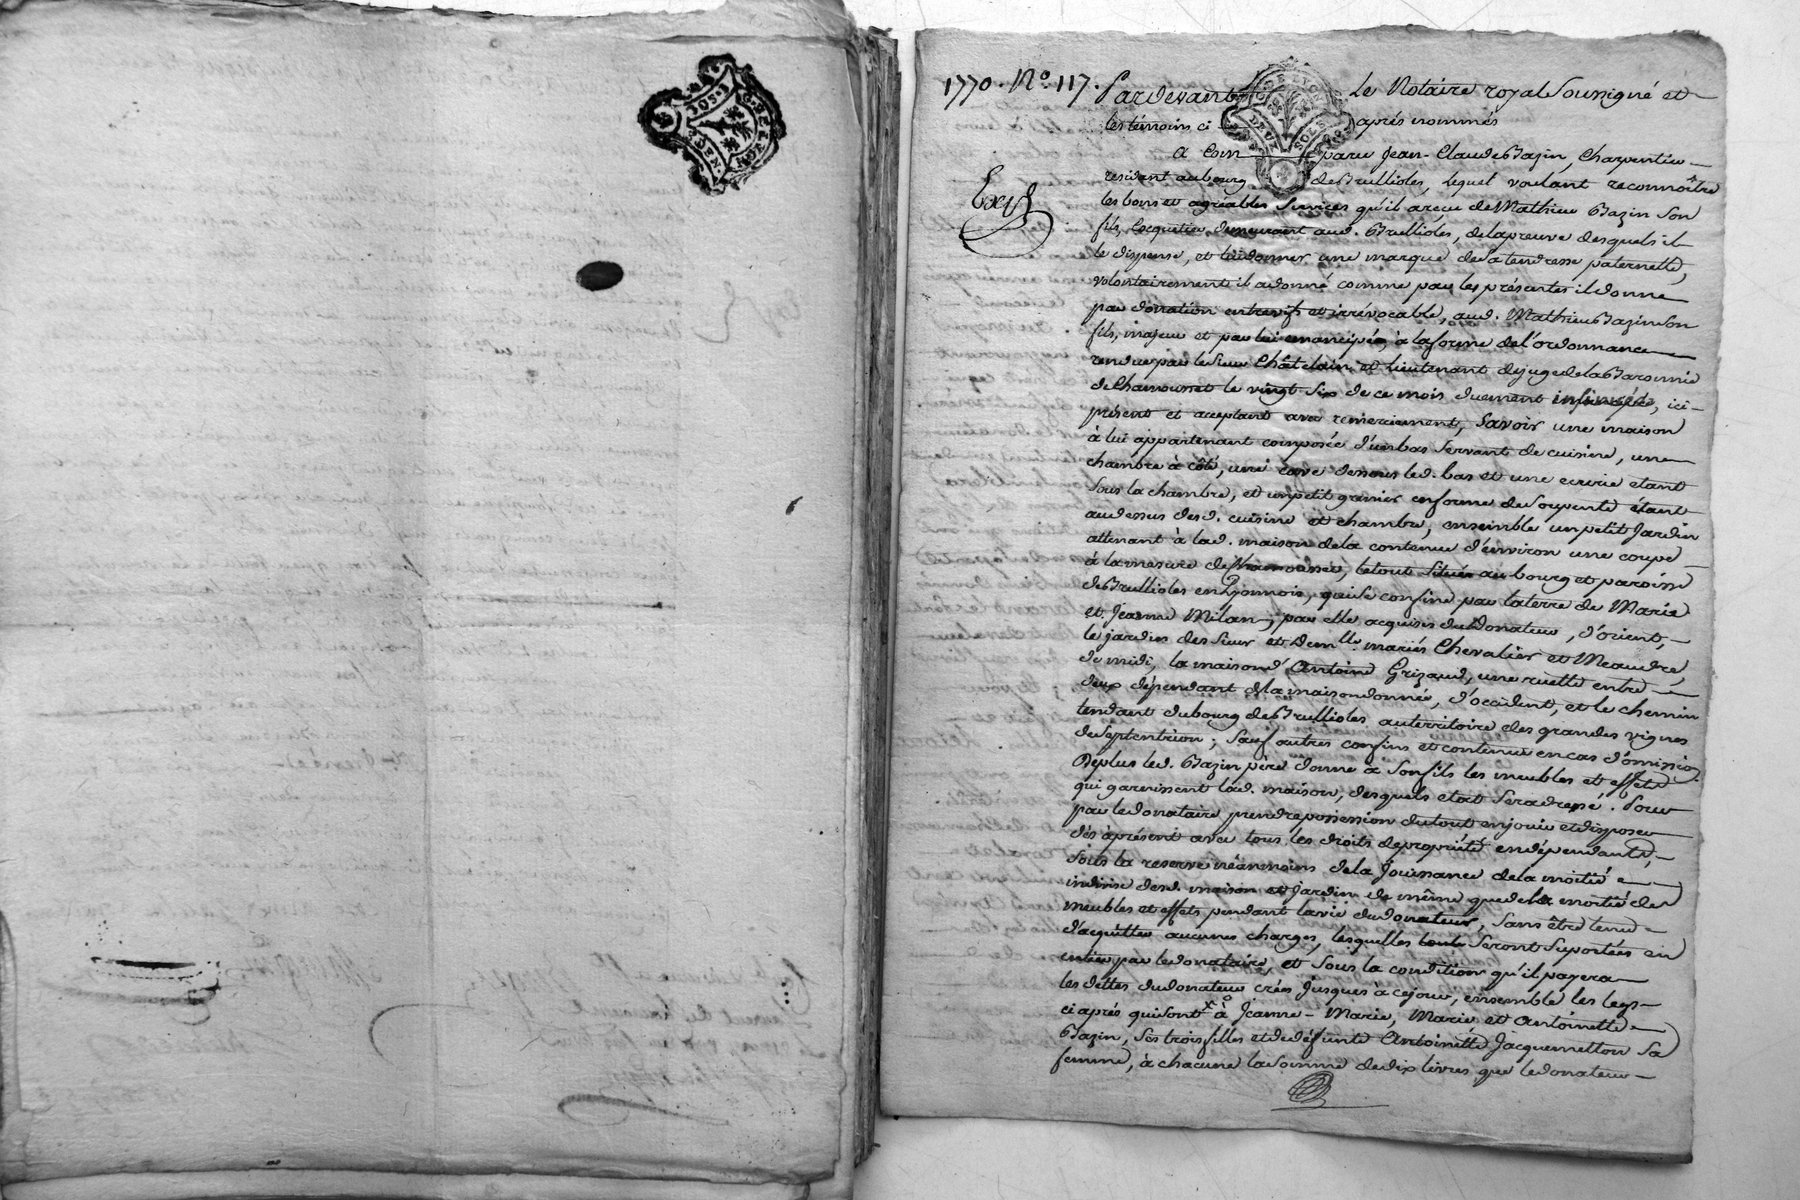 1770. N.º 117. Pardevant Le Notaire royal Soussigné et
les témoins ci après nommés
a Com paru Jean-Claude Bazin, Charpentier
residant au bourg de Brullioles, lequel voulant reconnoître
Exp.
les bons et agréables Services qu'il a reçu de Mathieu Bazin Son
fils, demeurant aud. Brullioles, de la preuve desquels il
le dispense, et lui donner une marque de Sa tendresse paternelle,
volontairement il a donné comme par les présentes il donne
par donation entrevifs et irrévocable, aud. Mathieu Bazin Son
fils, majeur et par lui emancipé, à la forme de l'ordonnance
rendue par le Sieur Châtelain et Lieutenant de juge de la Baronnie
de Chamousset le vingt Six de ce mois duement insinuée, ici
présent et acceptant avec remerciement, Savoir une maison
à lui appartenant composée d'un bas Servant de cuisine, une
chambre à côté, une cave dessous led. bas et une ecurie etant
Sous la chambre, et un petit grenier en forme de Soupente étant
audessus desd. cuisine et chambre, ensemble un petit Jardin
attenant à lad. maison de la contenue d'environ une coupe
à la mesure de Chamousset, le tout Situé au bourg et paroisse
de Brullioles en Lyonnois, qui Se confine par la terre de Marie
et Jeanne Milan, par elle acquises du Donateur, d'orient,
le jardin des Sieur et Dem.lle mariés Chevalier et Meaudre,
de midi, la maison d'Antoine Grizaud, une ruelle entre
deux dépendant de la maison donnée, d'occident, et le chemin
tendant du bourg de Brullioles au territoire des grandes vignes
de Septentrion; Sauf autres confins et contenue en cas d'omission.
De plus led. Bazin père donne à Son fils les meubles et effets
qui garnissent lad. maison, desquels etat Sera dressé. Pour
par le donataire prendre possession du tout en jouir et disposer
dès àprésent avec tous les droits de propriété en dépendants,
Sous la reserve néanmoins de la Jouissance de la moitié
indivise desd. maison et jardin de même que de la moitié des
meubles et effets pendant la vie du donateur, Sans être tenu
d'acquitter aucunes charges, lesquelles Seront Suportées en
entier par le donataire, et Sous la condition qu'il payera
les dettes du donateur créés jusques à ce jour, ensemble les legs
ci après qui Sont à Jeanne-Marie, Marie et Antoinette
Bazin, Ses trois filles et de défunte Antoinette Jacquemetton Sa
femme, à chacune la Somme de dix livres que le donateur